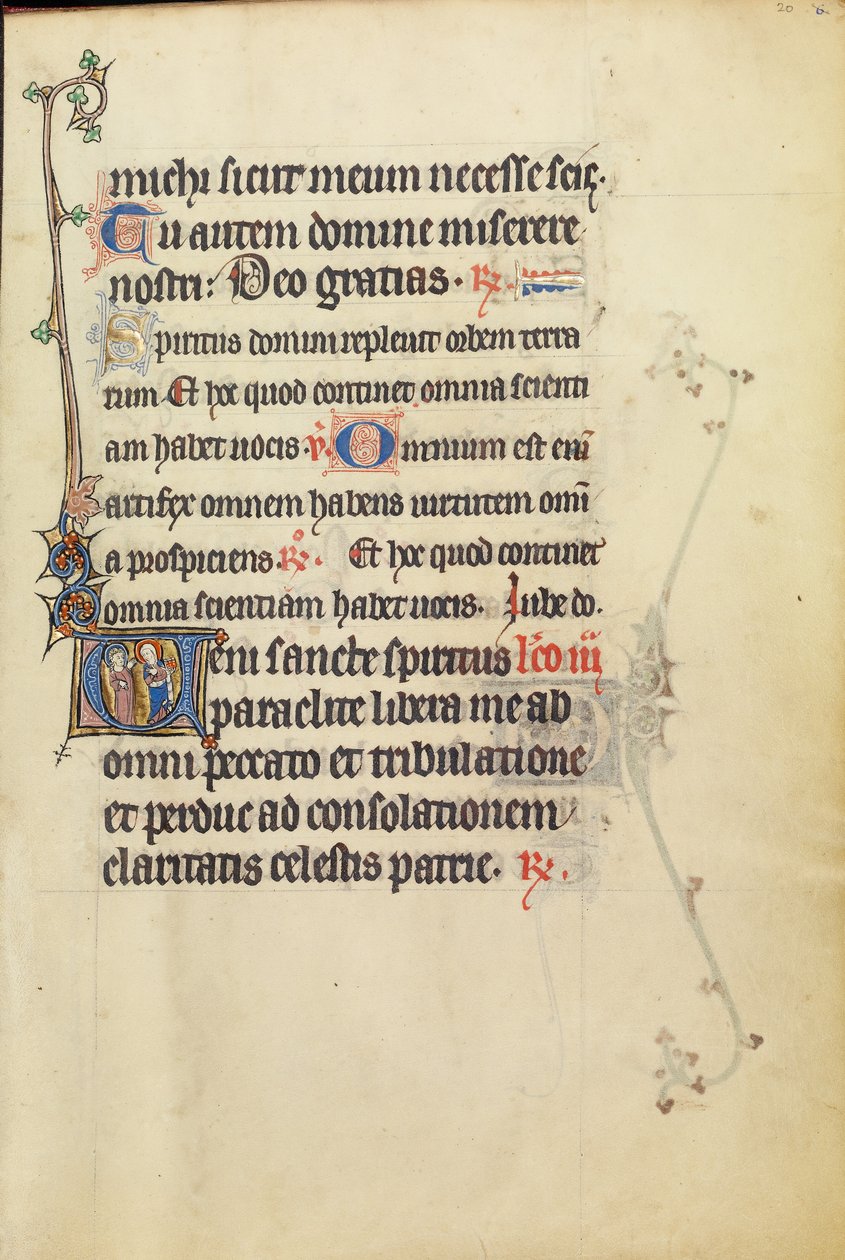 20 6
michi sicut meum necesse scis.
Tu autem domine miserere
nostri: Deo gratias. R.
Spiritus domini repleuit orbem terra
rum Et hoc quod continet omnia scienti
am habet uocis. V. Omnium est eni̅
artifex omnem habens uirtutem omi̅
a prospiciens. R. Et hoc quod continet
omnia scientiam habet uocis. Iube do.
Veni sancte spiritus l̅c̅o iii
paraclite libera me ab
omni peccato et tribulatione
et perduc ad consolationem
claritatis celestis patrie. R.